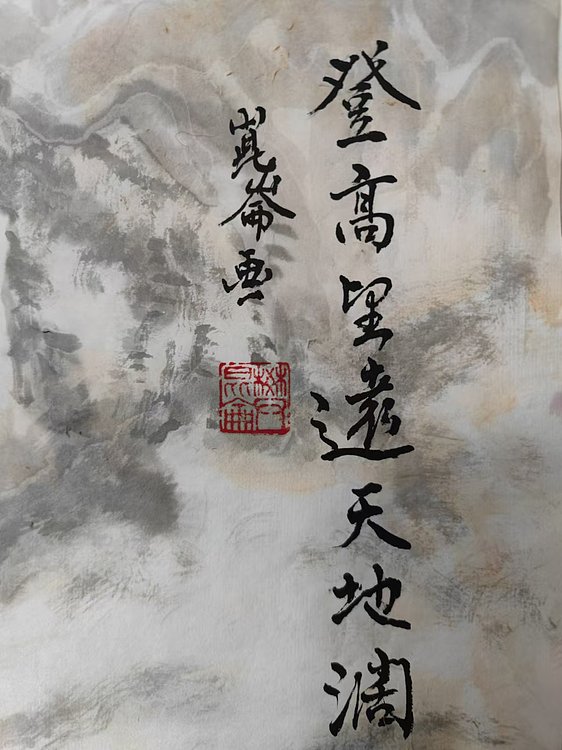 登高望遠天地濶
崑崙画